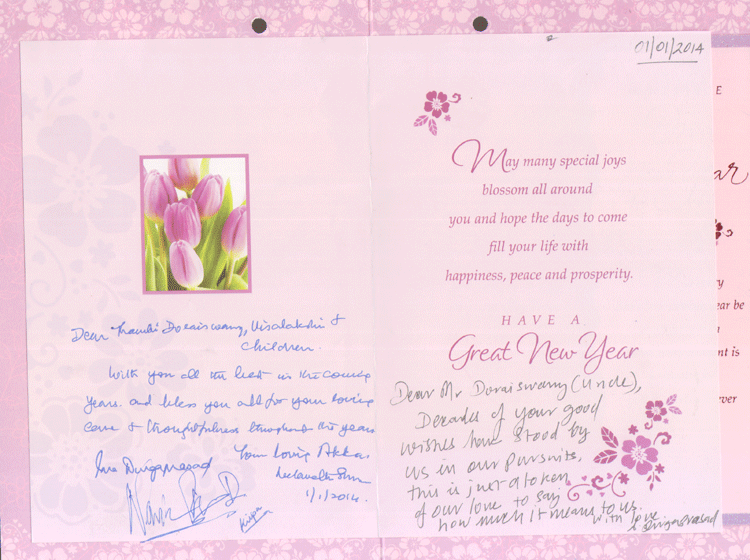 Dear Thambi Doraiswamy, Visalakshi &
Children.
Wish you all the best in the coming
years. and bless you all for your loving
care & thoughtfulness throughout the years
Your loving Akka
Durgaprasad
1/1/2014.
Kripa
01/01/2014
May many special joys
blossom all around
you and hope the days to come
fill your life with
happiness, peace and prosperity.
HAVE A
Great New Year
Dear Mr Doraiswamy (Uncle),
Decades of your good
wishes have stood by
us in our pursuits,
this is just a token
of our love to say
how much it means to us.
with love
Durgaprasad
E
ar
ry
ear be
nt is
ver